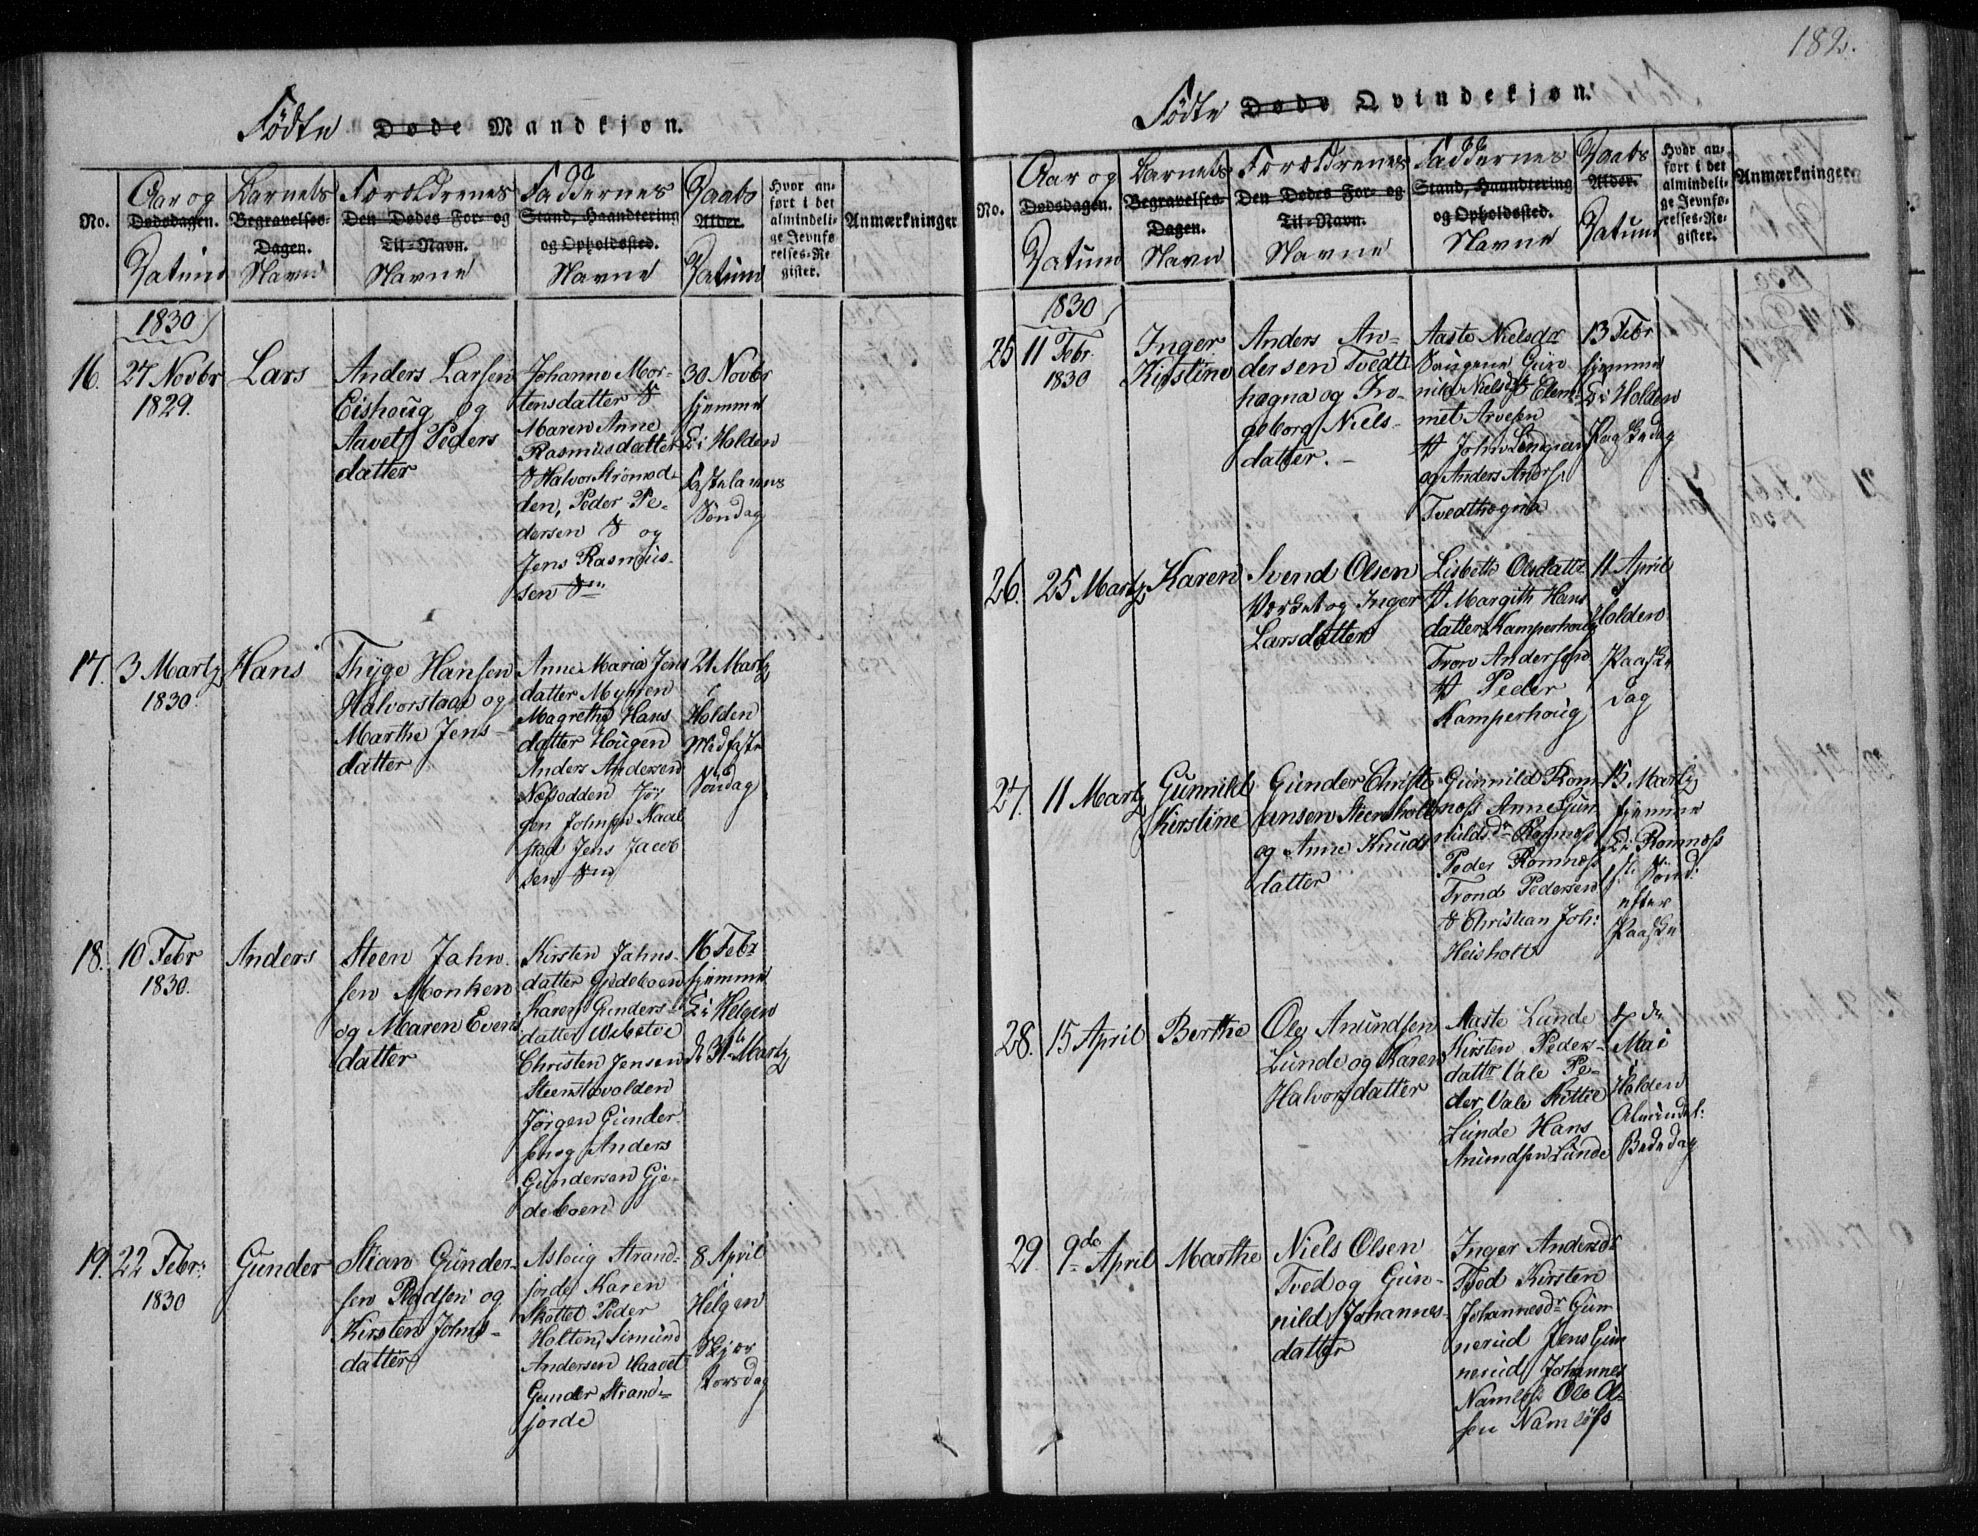 182.
Födte Döde Mandkjøn.
No.
Aar og
Dødsdagen.
Datum
Barnets
Begravelses-
Dagen.
Navn
Forældrenes
Den Dødes For- og
Til-Navn.
Navne
Faddernes
Stand, Haandtering
og Opholdssted.
Navne
Daabs
Alder.
Datum
Hvor an-
ført i det
almindeli-
ge Jevnfø-
relses-Re-
gister.
Anmærkninger
1830
16.
27 Novbr
1829.
Lars
Anders Larsen
Eishoug og
Peders
datter
Johanne Mor-
tensdatter
Maren Anne
Rasmusdatter
Halvor Strømod-
den, Peder Pe-
dersen og
Jens Rasmus-
sen
30 Novbr
hjemme
i Holden
Fastelavns
Søndag
17.
3 Martz
1830.
Hans
Thyge Hansen
Halvorstaae og
Marthe Jens-
datter
Anne Maria Jens
datter Myhren
Magrethe Hans
datter Hougen
Anders Andersen
Næsodden Jør
gen Johnsen Kaal
stad Jens Jacob
sen
21 Martz
i
Holden
Midfaste
Søndag
18.
10 Febr
1830.
Anders
Steen Jahn-
sen Monken
og Maren Evens
datter
Kirsten Jahns-
datter Gjedeboen
Karen Gunders-
datter
Christen Jensen
Steenstovolden
Jørgen Gunder-
sen og Anders
Gundersen Gje-
deboen
16 Febr
hjemme
i Helgen
d 31te Martz
19.
22 Febr:
1830
Gunder
Stian Gunder-
sen og
Kirsten Johns-
datter
Asloug Strand-
jorde Karen
Skottet Peder
Holten, Simund
Andersen Vaadet
Gunder Strand-
jorde
8 April
i
Helgen
Skjær
Torsdag
Födte Døde Qvindekjøn.
No.
Aar og
Dødsdagen.
Datum
Barnets
Begravelses-
Dagen.
Navn
Forældrenes
Den Dødes For- og
Til-Navn.
Navne
Faddernes
Stand, Haandtering
og Opholdssted.
Navne
Daabs
Alder.
Datum
Hvor an-
ført i det
almindeli-
ge Jevnfø-
relses-Re-
gister.
Anmærkninger
1830
25
11 Febr.
1830
Inger
Kirstine
Anders An-
dersen Tvedt
hagna og In-
geborg Niels-
datter.
Aaste Nielsdr
Gun
nild Nielsdr
met Arvesen
John
og Anders Anders.
Tvedthogna
13 Febr
hjemme
i Holden
Paaskedag
26.
25 Martz
Karen
Svend Olsen
Værket og Inger
Larsdatter
Lisbeth Olsdatter
Margith Hans
datter Kamperhoug
Tron Andersen
Peder
Kamperhoug
11 April
i
Holden
Paaske
dag
27.
11 Martz
Gunnild
Kirstine
Gunder Christi-
ansen Steensholt
og Anne Knuds
datter
Gunnild Rom
noss Anne Gun
nuldsdr Romnoss
Peder Romnoss
Trond Pedersen
Christian Joh:
Heisholt
15 Martz
hjemme
i Romnoss
1ste Sønd:
efter
Paaske
28.
15 April
Berthe
Ole Amundsen
Lunde og Karen
Halvorsdatter
Aaste Lunde
Kirsten Peders-
dattr Vale Pe-
der Vale Kittil
Lunde Hans
Amundsen Lunde
7de
Mai
i
Holden
Almindel:
Bededag
29.
9de April
Marthe
Niels Olsen
Tved og Gun-
nild Johannes-
datter
Inger Andersdr
Tved Kirsten
Johannesdr Gun
nerud Jens Gun
nerud Johannes
Namløs Ole Ol-
sen Namløss